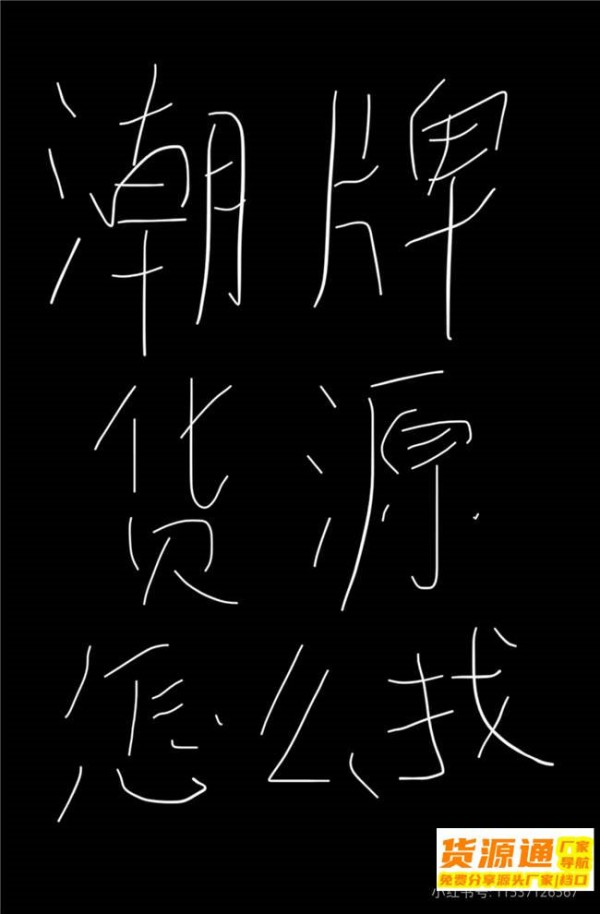 潮牌
货源
怎么找
货源通
厂家
导航
免费分享源头厂家|档口